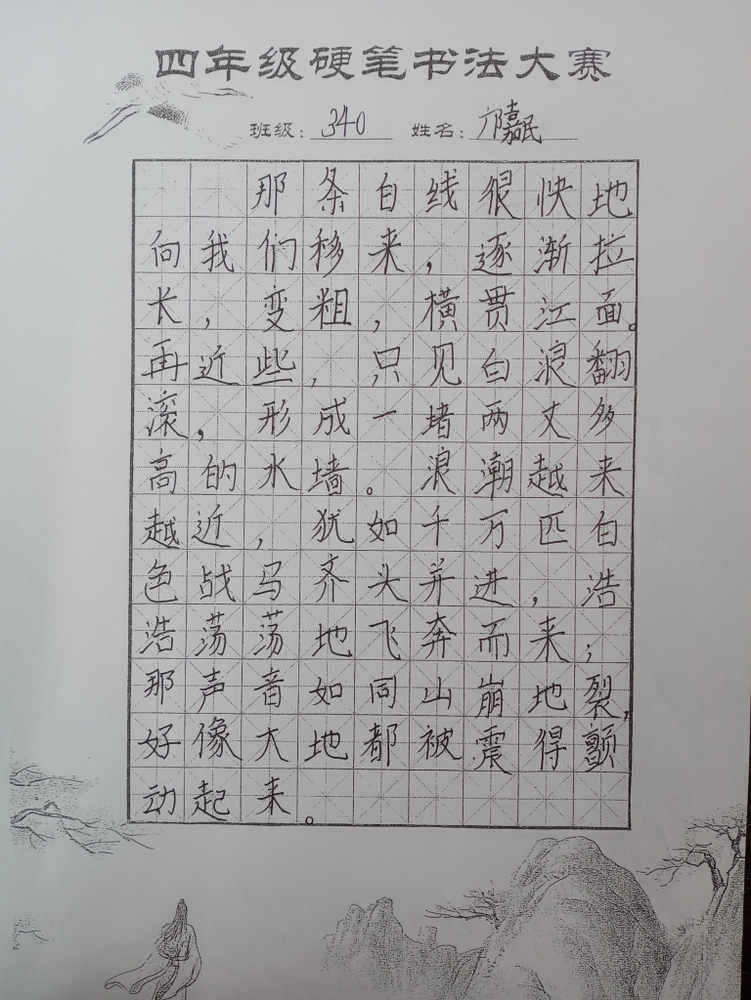 四年级硬笔书法大赛
班级：340 姓名：邝嘉民
那条白线很快地
向我们移来，逐渐拉
长，变粗，横贯江面。
再近些，只见白浪翻
滚，形成一堵两丈多
高的水墙。浪潮越来
越近，犹如千万匹白
色战马齐头并进，浩
浩荡荡地飞奔而来；
那声音如同山崩地裂，
好像大地都被震得颤
动起来。